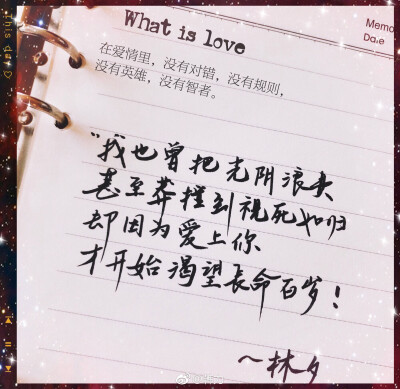 What is love
Memo
Date
this day
在爱情里，没有对错，没有规则，
没有英雄，没有智者。
“我也曾把光阴浪费
甚至莽撞到视死如归
却因为爱上你
才开始渴望长命百岁！
～林夕